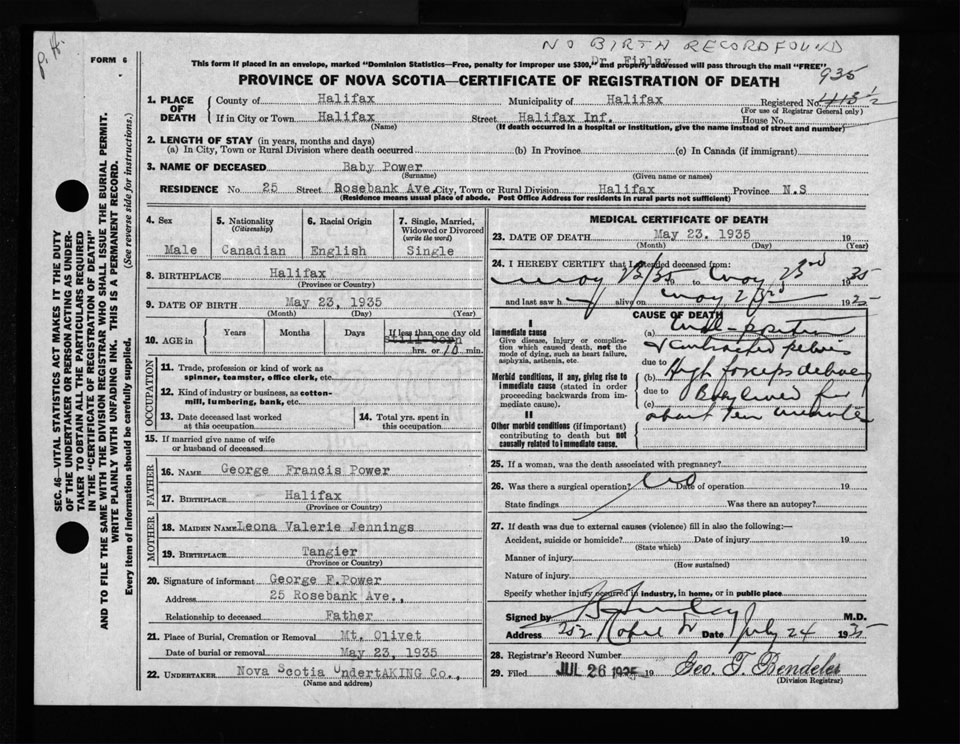 NO BIRTH RECORD FOUND
P.H.
FORM 6
This form if placed in an envelope, marked "Dominion Statistics—Free, penalty for improper use $300," and properly addressed will pass through the mail "FREE"
Dr. Finlay
PROVINCE OF NOVA SCOTIA—CERTIFICATE OF REGISTRATION OF DEATH
935
1. PLACE OF DEATH
County of Halifax Municipality of Halifax Registered No. 1113½
(For use of Registrar General only)
If in City or Town Halifax Street Halifax Inf. House No.
(Name) (If death occurred in a hospital or institution, give the name instead of street and number)
2. LENGTH OF STAY (in years, months and days)
(a) In City, Town or Rural Division where death occurred (b) In Province (c) In Canada (if immigrant)
3. NAME OF DECEASED Baby Power
(Surname) (Given name or names)
RESIDENCE No. 25 Street Rosebank Ave. City, Town or Rural Division Halifax Province N.S
(Residence means usual place of abode. Post Office Address for residents in rural parts not sufficient)
4. Sex Male
5. Nationality (Citizenship) Canadian
6. Racial Origin English
7. Single, Married, Widowed or Divorced (write the word) Single
8. BIRTHPLACE Halifax
(Province or Country)
9. DATE OF BIRTH May 23, 1935
(Month) (Day) (Year)
10. AGE in Years Months Days If less than one day old
still-born
hrs. or 10 min.
OCCUPATION
11. Trade, profession or kind of work as spinner, teamster, office clerk, etc.
12. Kind of industry or business, as cotton-mill, lumbering, bank, etc.
13. Date deceased last worked at this occupation
14. Total yrs. spent in this occupation
15. If married give name of wife or husband of deceased
FATHER
16. NAME George Francis Power
17. BIRTHPLACE Halifax
(Province or Country)
MOTHER
18. MAIDEN NAME Leona Valerie Jennings
19. BIRTHPLACE Tangier
(Province or Country)
20. Signature of informant George F. Power
Address 25 Rosebank Ave.,
Relationship to deceased Father
21. Place of Burial, Cremation or Removal Mt. Olivet
Date of burial or removal May 23, 1935
22. UNDERTAKER Nova Scotia UndertAKING Co.,
(Name and address)
MEDICAL CERTIFICATE OF DEATH
23. DATE OF DEATH May 23, 1935 19
(Month) (Day) (Year)
24. I HEREBY CERTIFY that I attended deceased from:
May 23/35 19 to May 23rd 1935
and last saw h alive on May 23rd 1935
CAUSE OF DEATH
I
Immediate cause
Give disease, injury or complication which caused death, not the mode of dying, such as heart failure, asphyxia, asthenia, etc.
(a) Mal-position
& Contracted pelvis
due to
Morbid conditions, if any, giving rise to immediate cause (stated in order proceeding backwards from immediate cause).
(b) High forceps delivery
due to
(c) Baby lived for
about ten minutes
II
Other morbid conditions (if important) contributing to death but not causally related to immediate cause.
25. If a woman, was the death associated with pregnancy?
26. Was there a surgical operation? No Date of operation 19
State findings Was there an autopsy?
27. If death was due to external causes (violence) fill in also the following:—
Accident, suicide or homicide? Date of injury 19
(State which)
Manner of injury
(How sustained)
Nature of injury
Specify whether injury occurred in industry, in home, or in public place
Signed by M.D.
Address 252 Date July 24 1935
28. Registrar's Record Number
29. Filed JUL 26 1935 19 Geo. T. Bendelei
(Division Registrar)
SEC. 46—VITAL STATISTICS ACT MAKES IT THE DUTY OF THE UNDERTAKER OR PERSON ACTING AS UNDERTAKER TO OBTAIN ALL THE PARTICULARS REQUIRED IN THE "CERTIFICATE OF REGISTRATION OF DEATH" AND TO FILE THE SAME WITH THE DIVISION REGISTRAR WHO SHALL ISSUE THE BURIAL PERMIT.
WRITE PLAINLY WITH UNFADING INK. THIS IS A PERMANENT RECORD.
Every item of information should be carefully supplied. (See reverse side for instructions.)